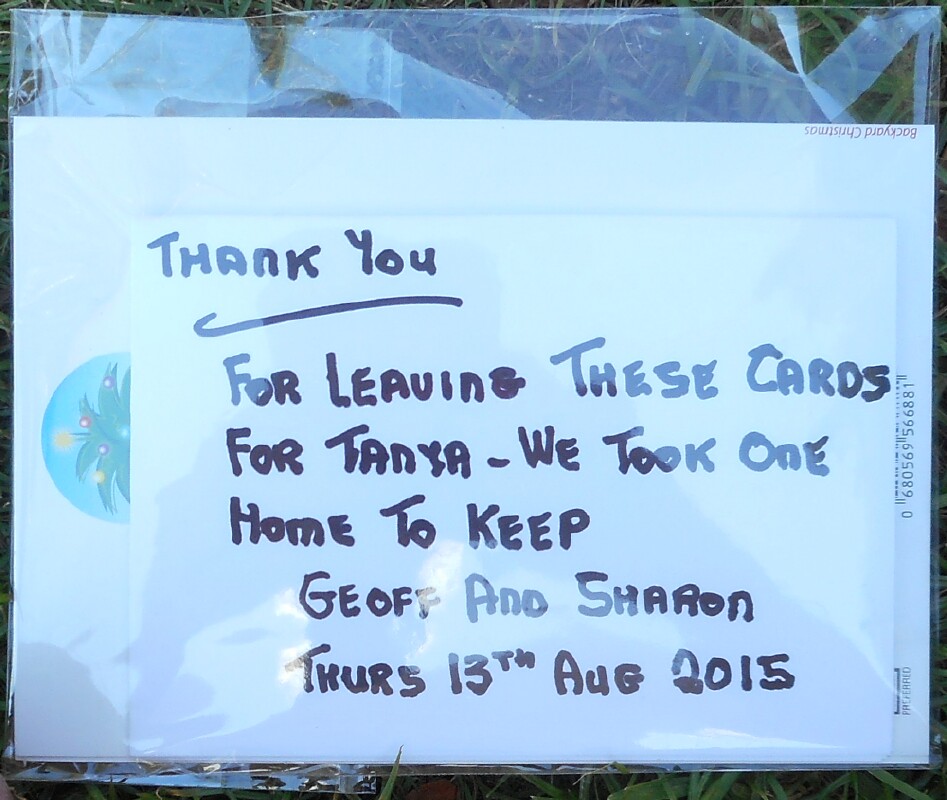 Backyard Christmas
THANK YOU
FOR LEAVING THESE CARDS
FOR TANYA - WE TOOK ONE
HOME TO KEEP
GEOFF AND SHARON
THURS 13TH AUG 2015
0 680569 566881
PREFERRED